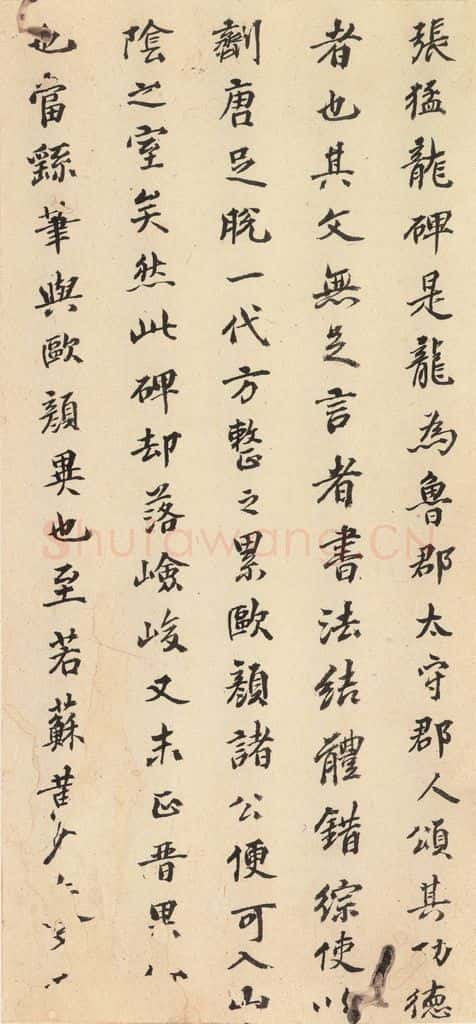 張猛龍碑是龍為魯郡太守郡人頌其功德
者也其文無足言者書法結體錯綜使以
劑唐足脫一代方整之累歐顏諸公便可入山
陰之室矣然此碑却落嶮峻又未正晉異
也當繇筆與歐顏異也至若蘇黃
Shufawang.CN